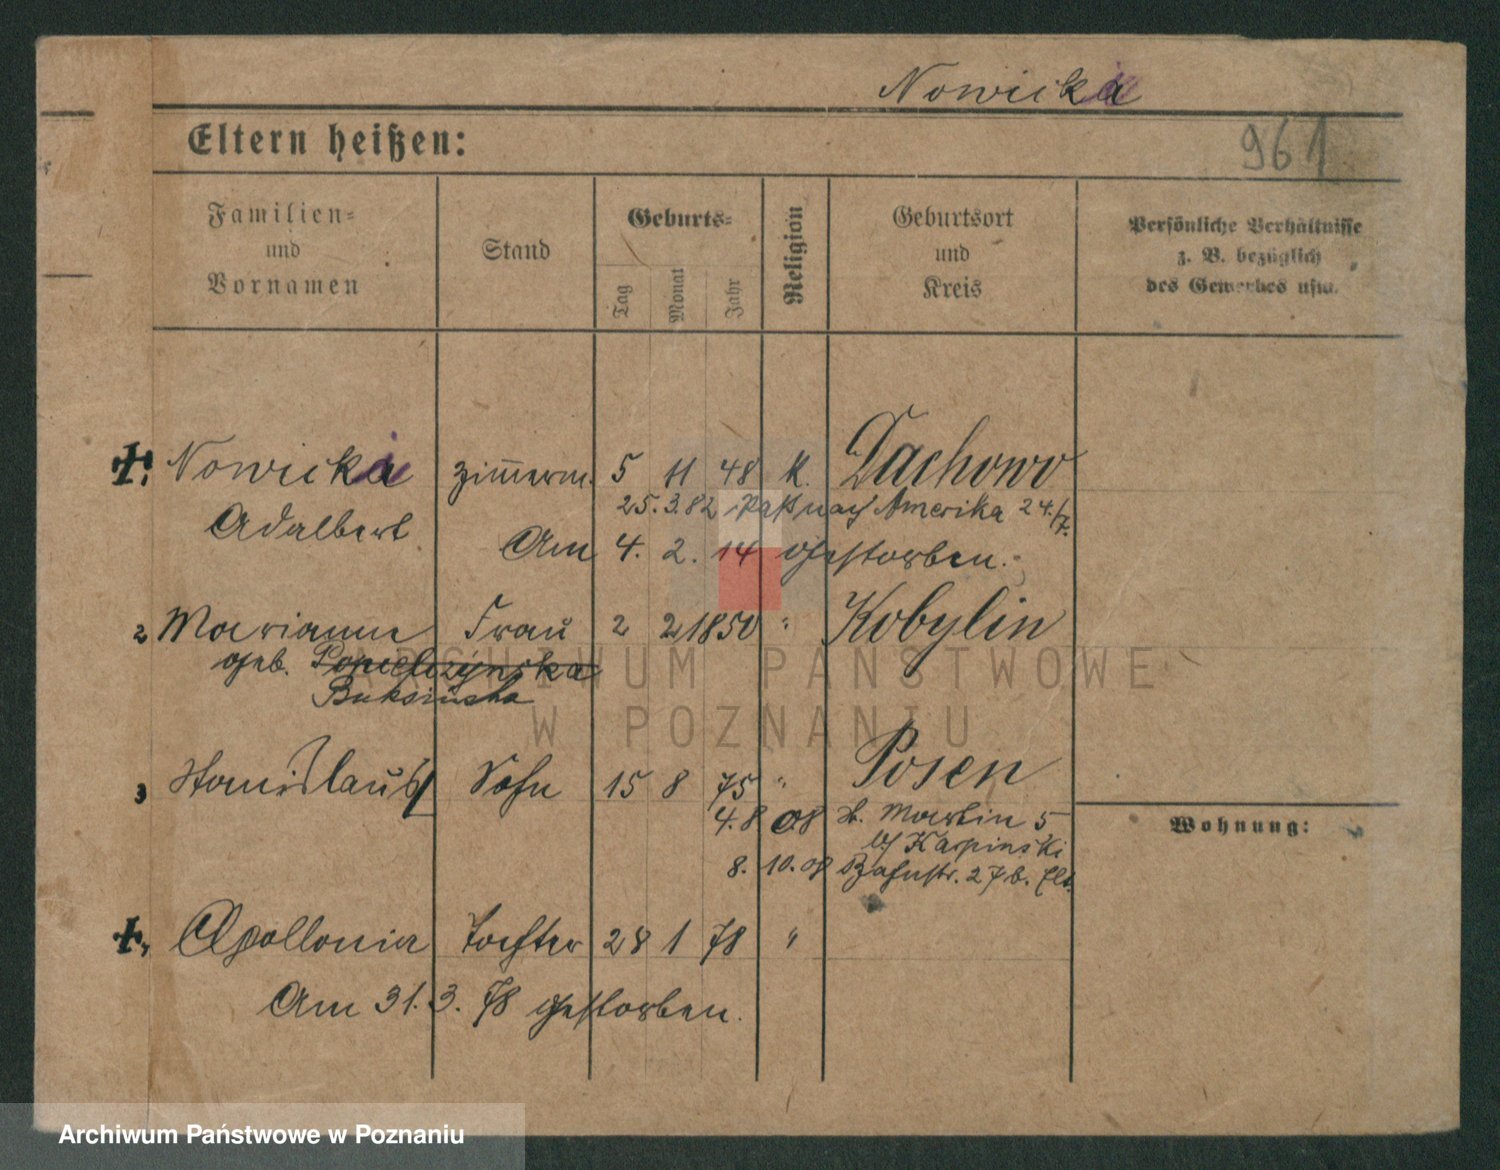 Nowicki
961
Eltern heißen:
Familien- und Vornamen
Stand
Geburts-
Tag
Monat
Jahr
Religion
Geburtsort und Kreis
Persönliche Verhältnisse z. B. bezüglich des Gewerbes usw.
1. Nowicki Zimmerm. 5 11 48 K. Dachowo
25.3.82 Paß nach Amerika 24./7.
Adalbert
Am 4. 2. 14 gestorben.
2 Marianne Frau 2 2 1850 " Kobylin
geb. Popielczynska
3 Stanislaus Sohn 15 8 75 " Posen
4.8.08 St. Martin 5
b/ Karpinski
8.10.08 Bahnstr. 27 b. Elt.
Wohnung:
4. Apollonia Tochter 28 1 78 "
Am 31. 3. 78 gestorben.
ARCHIWUM PAŃSTWOWE
W POZNANIU
Archiwum Państwowe w Poznaniu